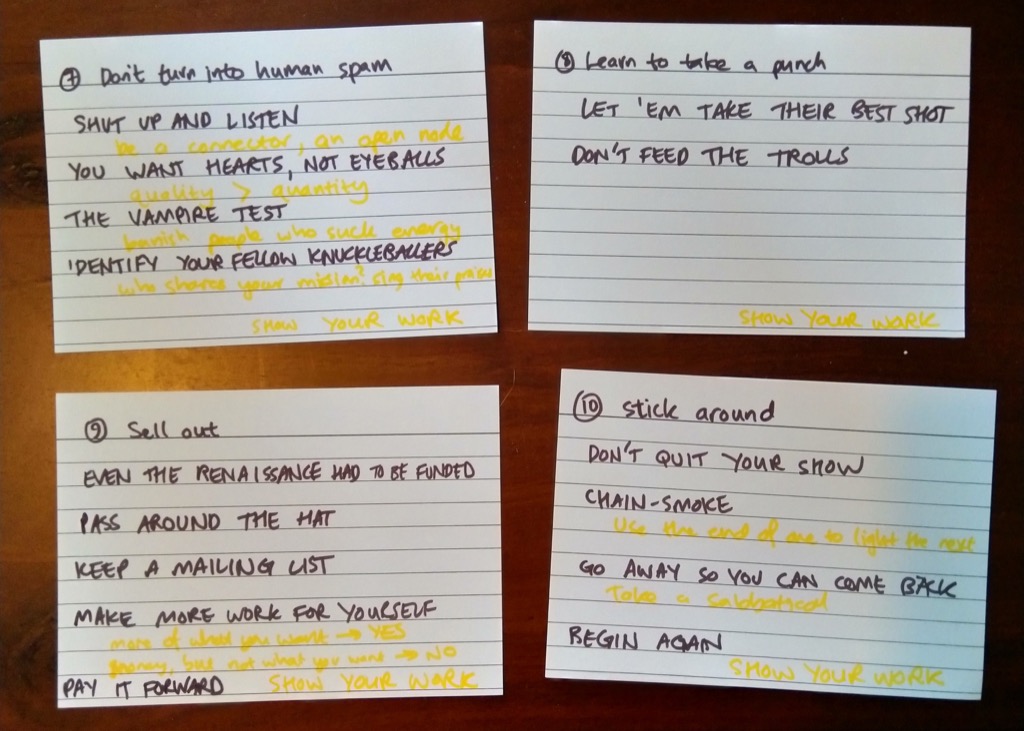 ⑦ Don't turn into human spam
SHUT UP AND LISTEN
be a connector, an open node
YOU WANT HEARTS, NOT EYEBALLS
quality > quantity
THE VAMPIRE TEST
banish people who suck energy
IDENTIFY YOUR FELLOW KNUCKLEBALLERS
who shares your mission? sing their praises
SHOW YOUR WORK
⑧ Learn to take a punch
LET 'EM TAKE THEIR BEST SHOT
DON'T FEED THE TROLLS
SHOW YOUR WORK
⑨ Sell out
EVEN THE RENAISSANCE HAD TO BE FUNDED
PASS AROUND THE HAT
KEEP A MAILING LIST
MAKE MORE WORK FOR YOURSELF
more of what you want → YES
money, but not what you want → NO
PAY IT FORWARD SHOW YOUR WORK
⑩ stick around
DON'T QUIT YOUR SHOW
CHAIN-SMOKE
Use the end of one to light the next
GO AWAY SO YOU CAN COME BACK
Take a sabbatical
BEGIN AGAIN
SHOW YOUR WORK